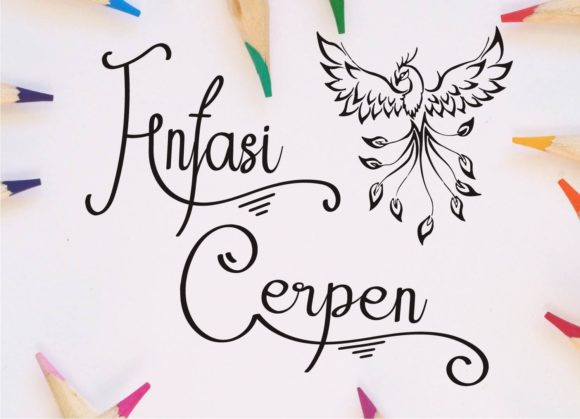 Anfasi
Cerpen